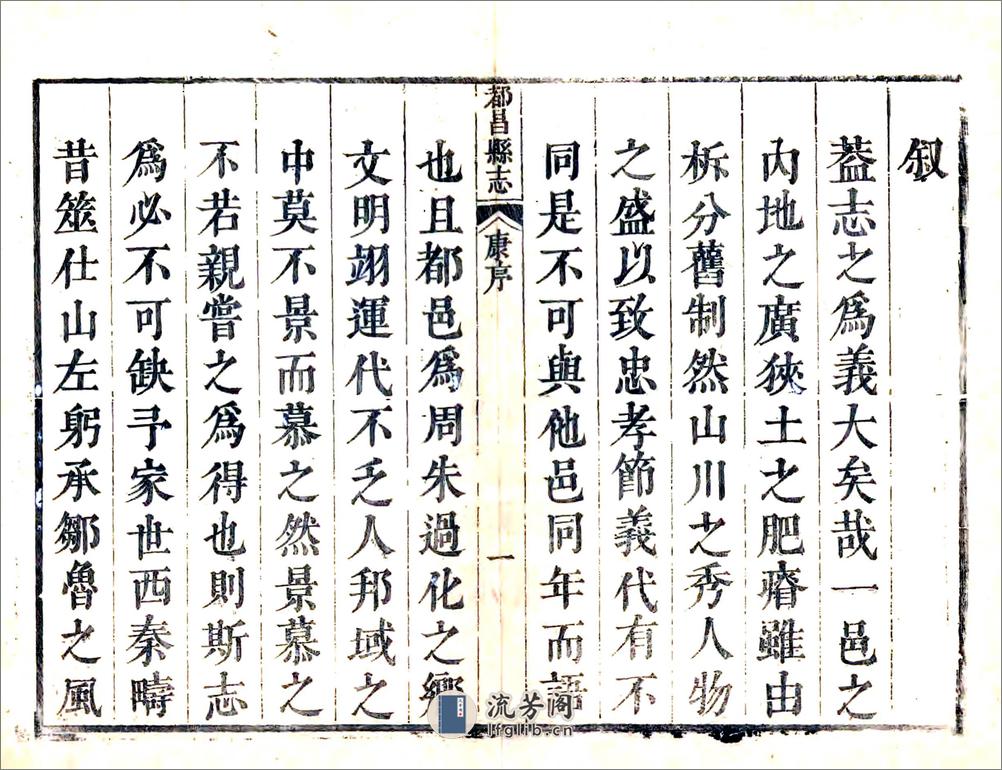 叙
蓋志之爲義大矣哉一邑之
內地之廣狹土之肥瘠雖由
柝分舊制然山川之秀人物
之盛以致忠孝節義代有不
同是不可與他邑同年而語
都昌縣志 康序 一
也且都邑爲周朱過化之鄉
文明翊運代不乏人邦域之
中莫不景而慕之然景慕之
不若親嘗之爲得也則斯志
爲必不可缺予家世西秦疇
昔筮仕山左躬承鄒魯之風
流芳阁
lfglib.cn